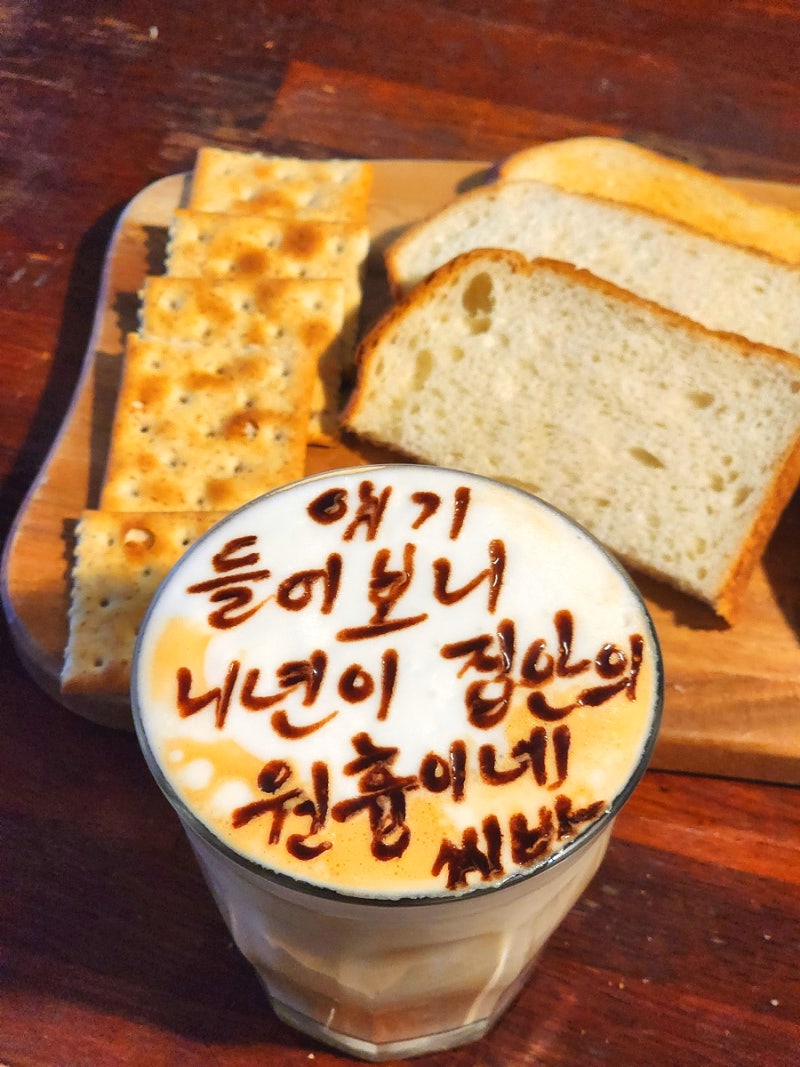 얘기
들어보니
니년이 집안의
원흉이네
씨바